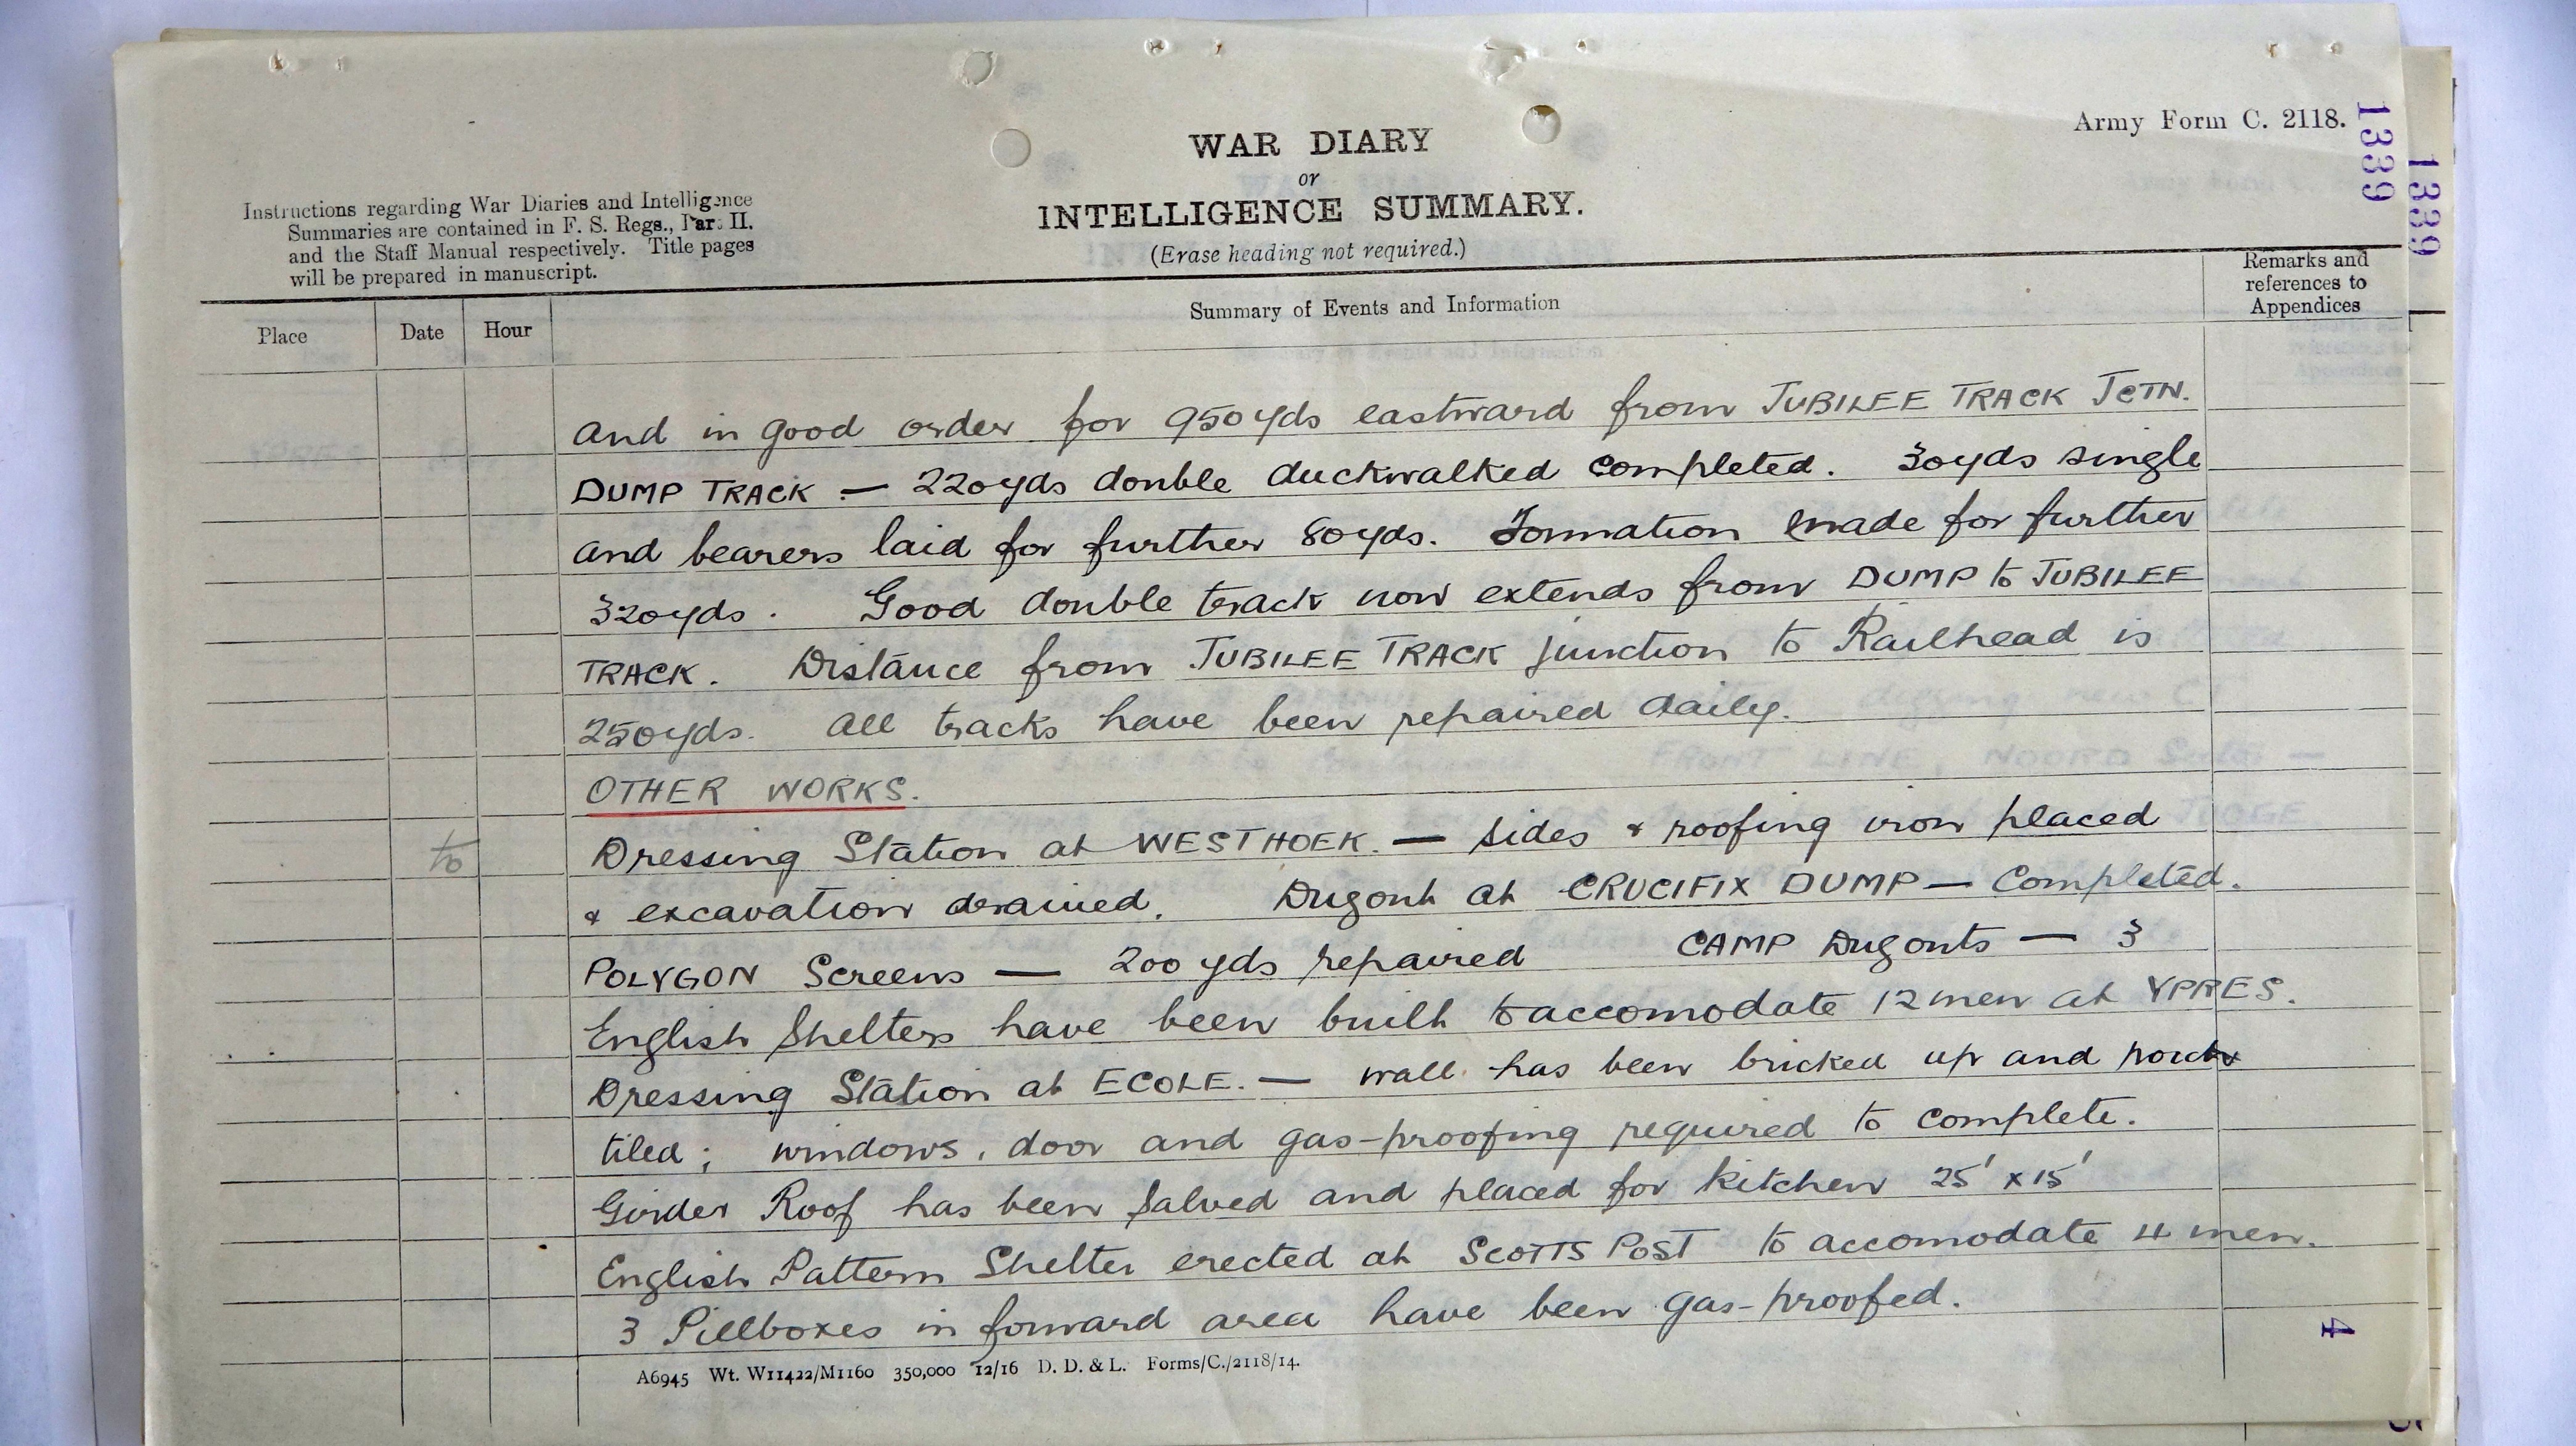 Army Form C. 2118.
1339
1339
WAR DIARY
or
INTELLIGENCE SUMMARY.
(Erase heading not required.)
Instructions regarding War Diaries and Intelligence
Summaries are contained in F. S. Regs., Part II.
and the Staff Manual respectively. Title pages
will be prepared in manuscript.
Place Date Hour Summary of Events and Information Remarks and references to Appendices
and in good order for 950yds eastward from JUBILEE TRACK JCTN.
DUMP TRACK — 220yds double duckwalked completed. 30yds single
and bearers laid for further 80yds. Formation made for further
320yds. Good double track now extends from DUMP to JUBILEE
TRACK. Distance from JUBILEE TRACK junction to Railhead is
250yds. All tracks have been repaired daily.
OTHER WORKS.
to Dressing Station at WESTHOEK. — Sides & roofing iron placed
& excavation drained. Dugout at CRUCIFIX DUMP — Completed.
POLYGON Screens — 200 yds repaired CAMP Dugouts — 3
English Shelters have been built to accomodate 12 men at YPRES.
Dressing Station at ECOLE. — wall has been bricked up and porch
tiled; windows, door and gas-proofing required to complete.
Girder Roof has been salved and placed for kitchen 25' x 15'
English Pattern Shelter erected at SCOTTS POST to accomodate 4 men.
3 Pillboxes in forward area have been gas-proofed.
4
A6945 Wt. W11422/M1160 350,000 12/16 D. D. & L. Forms/C./2118/14.